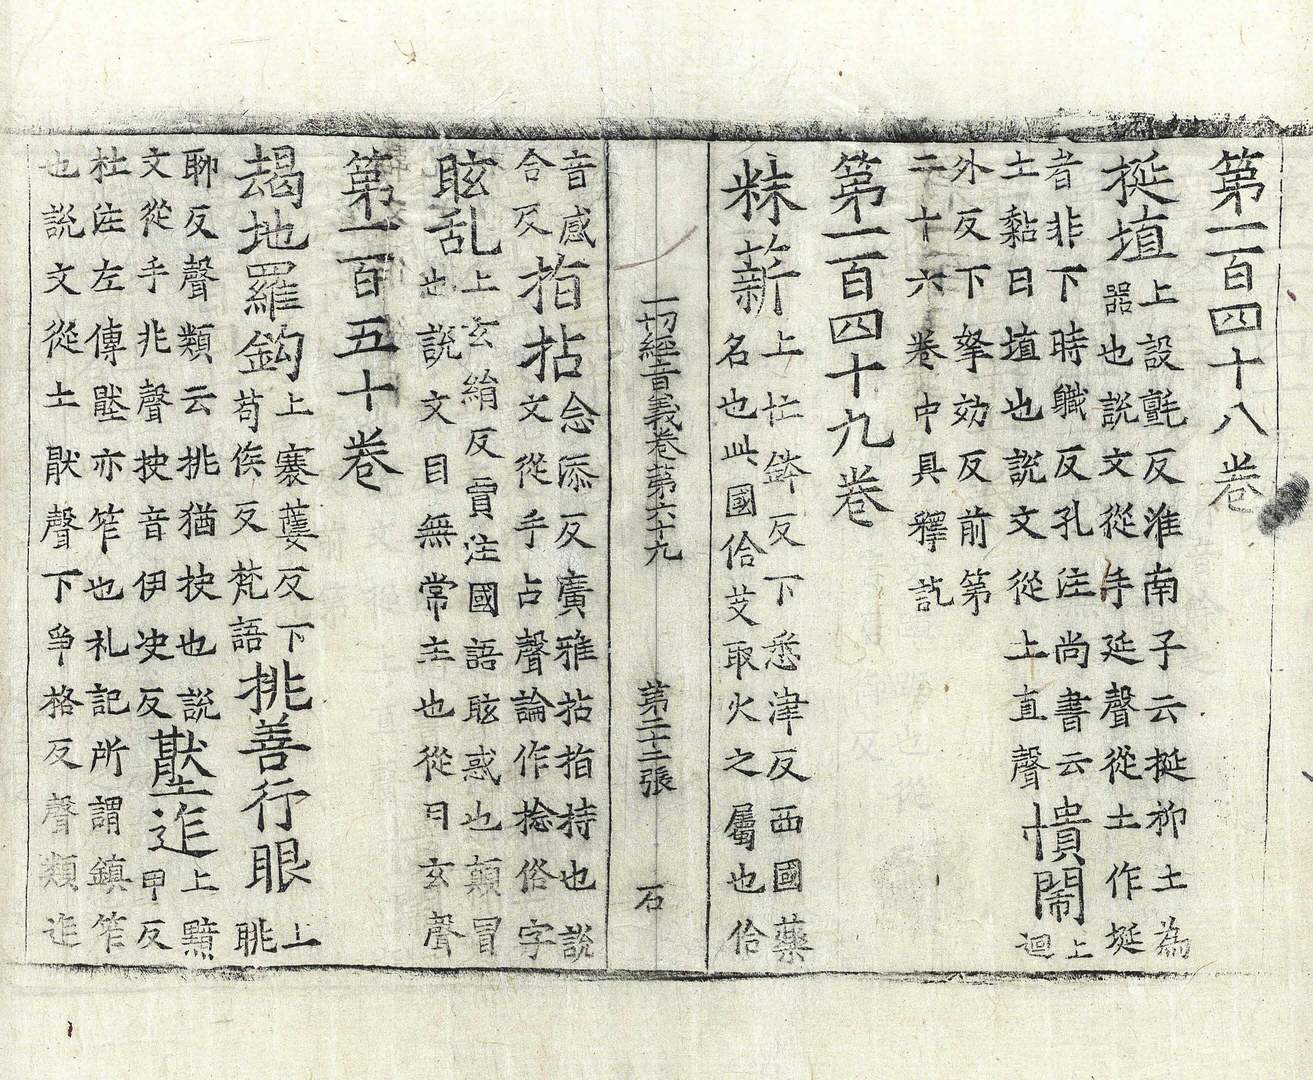 第一百四十八卷
挻埴上設氈反淮南子云挻抑土為器也說文從手延聲從土作埏
者非下時職反孔注尚書云土黏曰埴也說文從土直聲憒鬧上迴
外反下拏効反前第二十六卷中具釋訖
第一百四十九卷
粖薪上忙鉢反下悉津反西國藥名也此國佮艾取火之屬也佮
一切經音義卷第六十九 第二十二張 石
音感合反指拈念添反廣雅拈指持也說文從手占聲論作捻俗字
眩乱上玄絹反賈注國語眩惑也顛冒也說文目無常主也從目玄聲
第一百五十卷
朅地羅鈎上褰蘖反下苟侯反梵語挑善行眼上眺
聊反聲類云挑猶抉也說文從手兆聲抉音伊决反壓迮上黶甲反
杜注左傳壓亦笮也礼記所謂鎮笮也說文從土猒聲下爭格反聲類迮